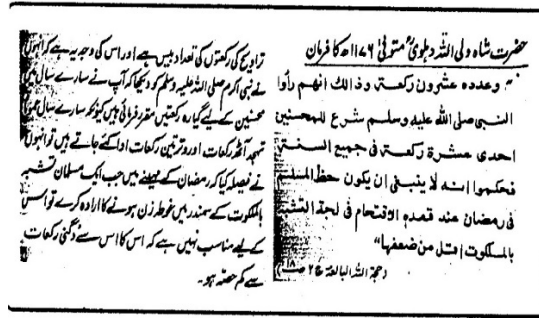 حضرت شاہ ولی اللہ دہلویؒ متوفیٰ ۱۱۷۶ھ کا فرمان
"وعدده عشرون ركعة وذالك انهم رأوا
النبى صلى الله عليه وسلم شرع للمحسنين
احدى عشرة ركعة فى جميع السنة
فحكموا انه لا ينبغى ان يكون حظ المسلم
فى رمضان عند قصده الاقتحام فى لجة التشبه
بالملكوت اقل من ضعفها"
(حجۃ اللہ البالغۃ ج ۲ صـ ۱۸)
تراویح کی رکعتوں کی تعداد بیس ہے اور اس کی وجہ یہ ہے کہ انہوں
نے نبی اکرم صلی اللہ علیہ وسلم کو دیکھا کہ آپ نے سارے سال میں
محسنین کے لیے گیارہ رکعتیں مقرر فرمائی ہیں کیونکہ سارے سال میں
تہجد آٹھ رکعات اور وتر تین رکعات ادا کئے جاتے ہیں تو انہوں
نے فیصلہ کیا کہ رمضان کے مہینے میں جب ایک مسلمان تشبہ
بالملکوت کے سمندر میں غوطہ زن ہونے کا ارادہ کرے تو اس
کے لیے مناسب نہیں ہے کہ اس کا اس سے دگنی رکعات
سے کم حصہ ہو۔